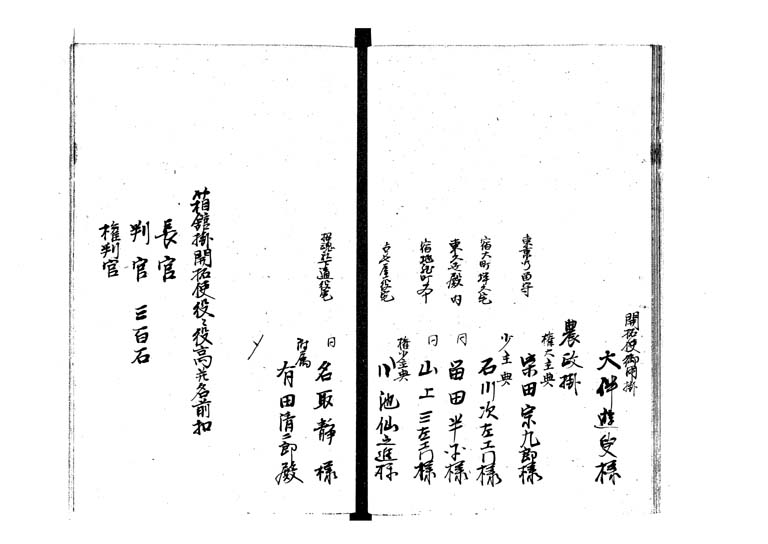 開拓使御用掛
大伴遊叟様
農政掛
権大主典
東京乃留守
宗田宗九郎様
少主典
宿大町
石川次左エ門様
同
東久世殿内
留田半平様
同
宿地蔵町
山上三左エ門様
権少主典
川池仙之進様
同
名取静様
附属
有田清二郎殿
〆
箱舘掛開拓使役々役高並名前扣
長官
判官 三百石
権判官